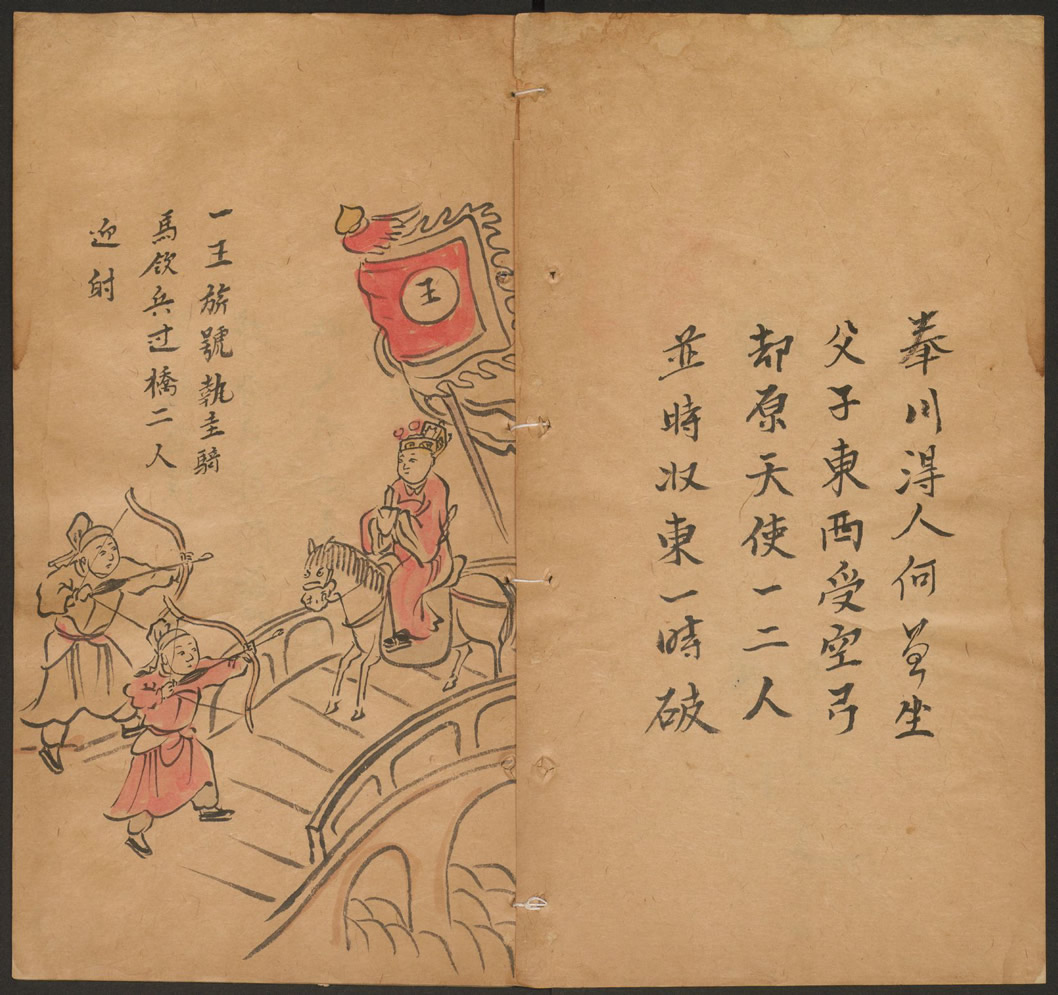 奉川得人何為坐
父子東西受空弓
却原天使一二人
並時收東一時破
王
一王旂號執主騎
馬飲兵过橋二人
迎射